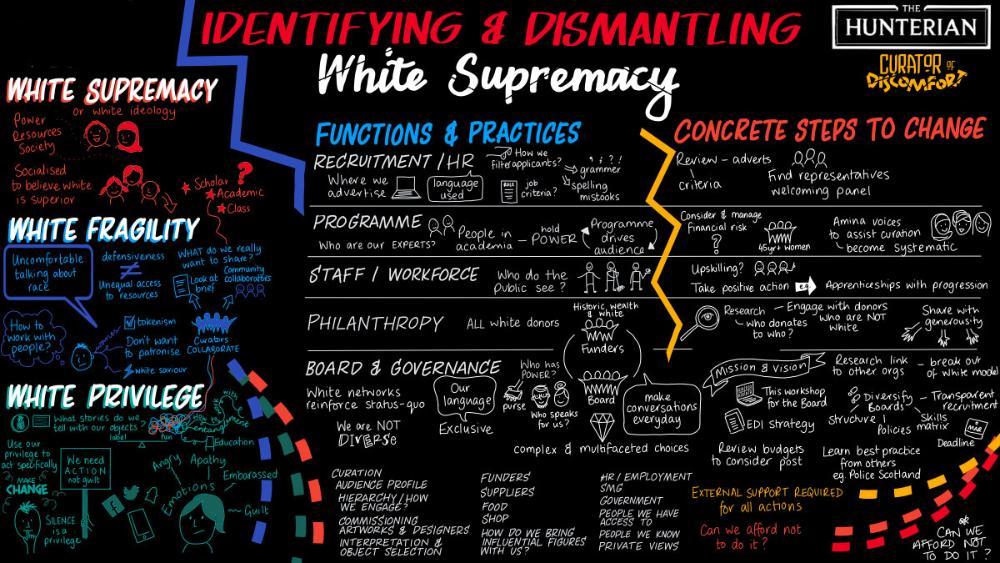 IDENTIFYING & DISMANTLING
White Supremacy
THE
HUNTERIAN
CURATOR OF
DISCOMFORT
WHITE SUPREMACY
or white ideology
Power
Resources
Society
Socialised
to believe white
is superior
Scholar
Academic
Class
?
WHITE FRAGILITY
Uncomfortable
talking about
race
defensiveness
≠
Unequal access
to resources
WHAT do we really
want to share?
Look at
brief
Community
collaborators
How to
work with
people?
tokenism
Don't want
to patronise
white saviour
Curators
COLLABORATE
WHITE PRIVILEGE
What stories do we
tell with our objects?
label
fun
Education
Use our
privilege to
act specifically
MAKE
CHANGE
We need
ACTION
not guilt
SILENCE
is a
privilege
Angry
Apathy
Embarrassed
Emotions
Guilt
FUNCTIONS & PRACTICES
RECRUITMENT / HR
Where we
advertise
language
used
How we
filter applicants?
job
criteria?
, ! ? !
grammer
spelling
mistooks
PROGRAMME
Who are our EXPERTS?
People in
academia – hold
POWER
Programme
drives
audience
STAFF / WORKFORCE
Who do the
public see?
PHILANTHROPY
ALL white donors
Historic, wealth
& white
Funders
Board
BOARD & GOVERNANCE
White networks
reinforce status-quo
We are NOT
DIVERSE
Our
language
Exclusive
Who has
POWER?
purse
Who speaks
for us?
make
conversations
everyday
complex & multifaceted choices
CONCRETE STEPS TO CHANGE
Review – adverts
criteria
Find representatives
welcoming panel
Consider & manage
Financial risk
?
45yr+ women
Amina voices
to assist curation
become systematic
Upskilling?
Take positive action
Apprenticeships with progression
Research
who donates
to who?
Engage with donors
who are NOT
white
Share with
generousity
Mission & vision
This workshop
for the Board
EDI strategy
Review budgets
to consider post
Research link
to other orgs
– break out
of white model
Diversify
Boards
Transparent
recruitment
Structure
Policies
Skills
matrix
MAR
Deadline
Learn best practice
from others
eg. Police Scotland
CURATION
AUDIENCE PROFILE
HIERARCHY / HOW
WE ENGAGE?
COMMISSIONING
ARTWORKS & DESIGNERS
INTERPRETATION &
OBJECT SELECTION
FUNDERS
SUPPLIERS
FOOD
SHOP
HOW DO WE BRING
INFLUENTIAL FIGURES
WITH US?
HR / EMPLOYMENT
SMG
GOVERNMENT
PEOPLE WE HAVE
ACCESS TO
PEOPLE WE KNOW
PRIVATE VIEWS
EXTERNAL SUPPORT REQUIRED
for all actions
Can we afford not
to do it?
or
CAN WE
AFFORD NOT
TO DO IT?